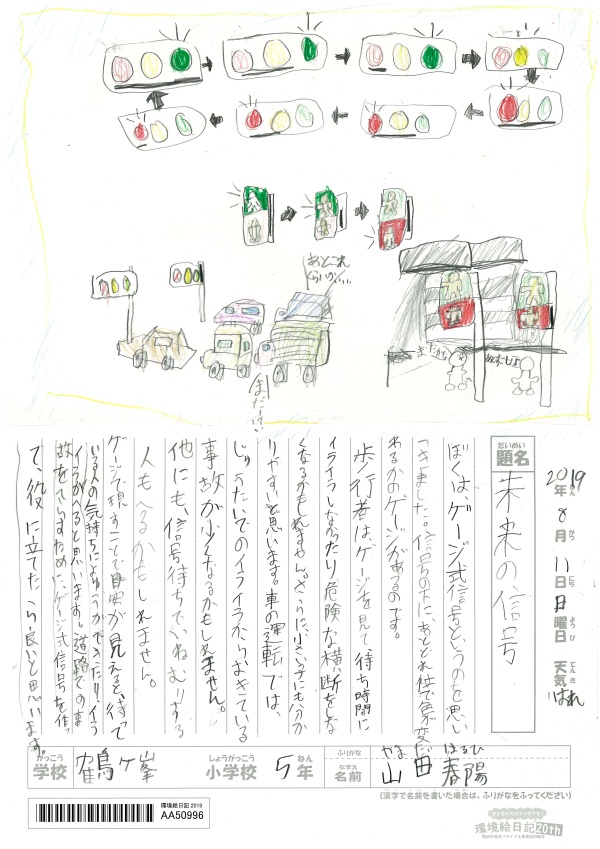 あとこれくらいか…
まだー!?
まだかな
2019年ねん 8月がつ 11日にち 日曜日ようび 天気てんき はれ
だいめい
題名
未来の信号
ぼくは、ゲージ式信号というのを思い
つきました。信号の下に、あとどれ位で色が変
わるかのゲージがあるのです。
歩行者は、ゲージを見て待ち時間に
イライラしなかったり危険な横断をしな
くなるかもしれません。さらに、小さい子にも分か
りやすいと思います。車の運転では、
じゅうたいでのイライラからおきている
事故が少くなるかもしれません。
他にも、信号待ちでいねむりする
人もへるかもしれません。
ゲージで現すことで目安が見えると、待って
いる人の気持ちによゆうができたり、イラ
イラがへると思います。道路での事
故をへらすために、ゲージ式信号を作っ
て、役に立てたら良いと思います。
がっこう しょうがっこう ねん ふりがな やまだ はるひ
学校 鶴ケ峯 小学校 5年 なまえ 名前 山田 春陽
(漢字で名前を書いた場合は、ふりがなをふってください)
環境絵日記 2019
AA50996
環境絵日記20th